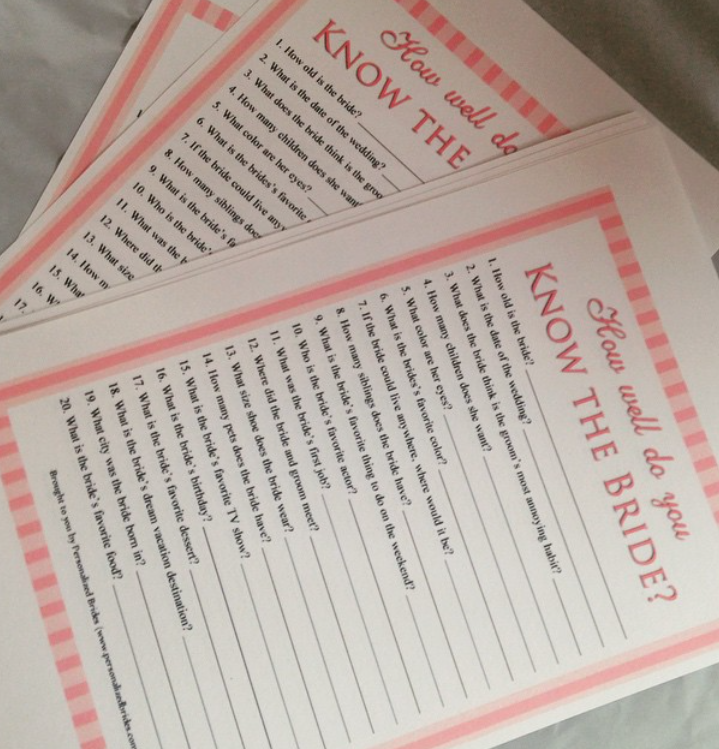 How well do
KNOW THE
1. How old is the bride?
2. What is the date of the wedding?
3. What does the bride think is the
4. How many children does she want
5. What color are her eyes?
6. What is the brides's favorite
7. If the bride could live
8. How many siblings
9. What is the bride's
10. Who is the bride's
11. What was the
12. Where did
13. What size
14. How
15. What
16.
17.
How well do you
KNOW THE BRIDE?
1. How old is the bride?
2. What is the date of the wedding?
3. What does the bride think is the groom's most annoying habit?
4. How many children does she want?
5. What color are her eyes?
6. What is the brides's favorite color?
7. If the bride could live anywhere, where would it be?
8. How many siblings does the bride have?
9. What is the bride's favorite thing to do on the weekend?
10. Who is the bride's favorite actor?
11. What was the bride's first job?
12. Where did the bride and groom meet?
13. What size shoe does the bride wear?
14. How many pets does the bride have?
15. What is the bride's favorite TV show?
16. What is the bride's birthday?
17. What is the bride's favorite dessert?
18. What is the bride's dream vacation destination?
19. What city was the bride born in?
20. What is the bride's favorite food?
Brought to you by Personalized Brides (www.personalizedbrides.com